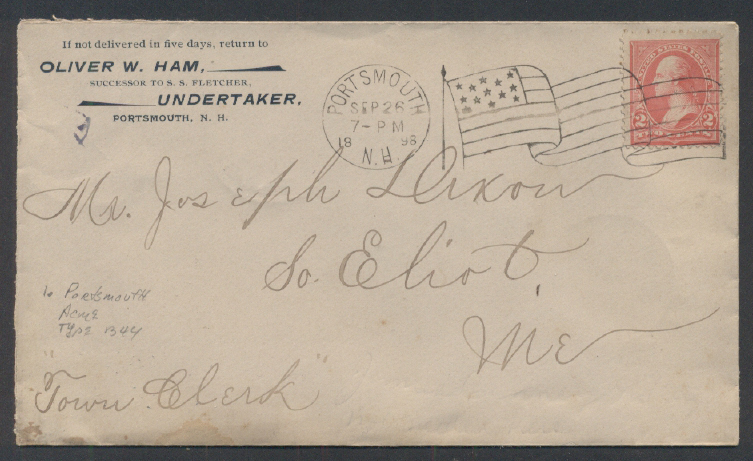 If not delivered in five days, return to
OLIVER W. HAM,
SUCCESSOR TO S. S. FLETCHER,
UNDERTAKER,
PORTSMOUTH, N. H.
PORTSMOUTH
SEP 26
7-PM
18 98
N.H.
2 2
Mr. Joseph Dixon
So. Eliot,
Me
Portsmouth
Acme
Type 1344
"Town Clerk"